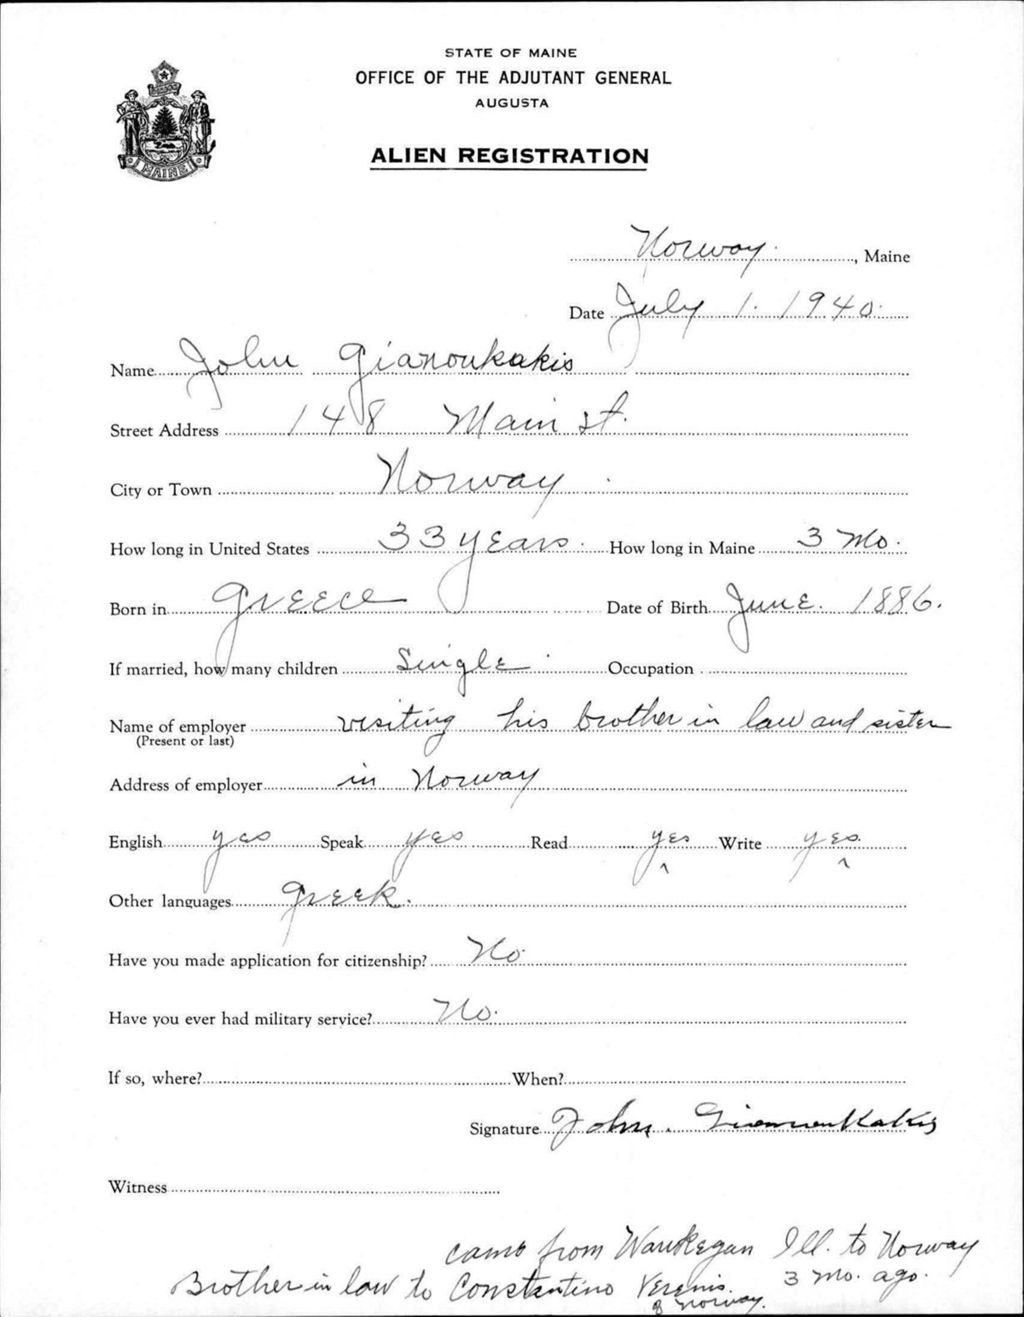 STATE OF MAINE
OFFICE OF THE ADJUTANT GENERAL
AUGUSTA
ALIEN REGISTRATION
MAINE
Norway, Maine
Date July 1. 1940.
Name John Gianoukakis
Street Address 148 Main st.
City or Town Norway
How long in United States 33 years. How long in Maine 3 Mo.
Born in Greece Date of Birth June. 1886.
If married, how many children Single Occupation
Name of employer visiting his brother in law and sister
(Present or last)
Address of employer in Norway
English yes Speak yes Read yes Write yes.
Other languages Greek.
Have you made application for citizenship? No.
Have you ever had military service? No.
If so, where? When?
Signature John. Gianoukakis
Witness
came from Waukegan Ill. to Norway
3 mo. ago.
Brother in law to Constantino Verenis.
of Norway.